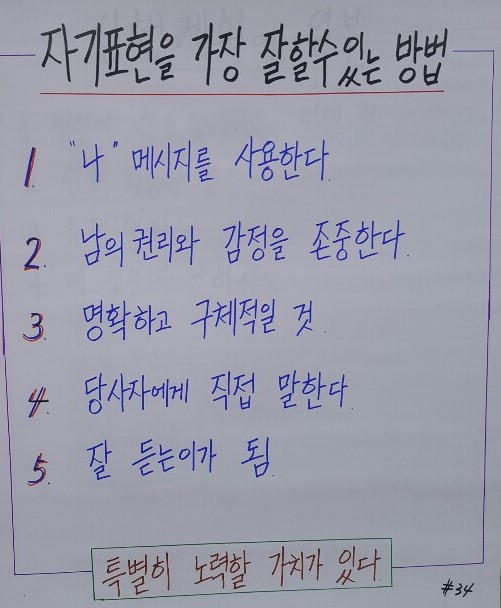 자기표현을 가장 잘할수있는 방법
1. "나" 메시지를 사용한다.
2. 남의 권리와 감정을 존중한다.
3. 명확하고 구체적일 것.
4. 당사자에게 직접 말한다.
5. 잘 듣는이가 됨.
특별히 노력할 가치가 있다
#34